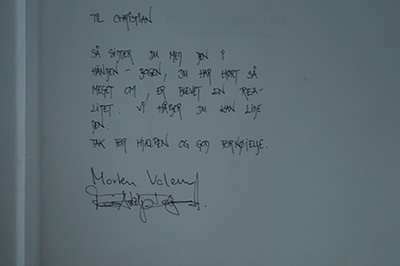 TIL CHRISTIAN
SÅ SIDDER DU MED DEN I
HÅNDEN - BOGEN, DU HAR HØRT SÅ
MEGET OM, ER BLEVET EN REA-
LITET. VI HÅBER DU KAN LIDE
DEN.
TAK FOR HJÆLPEN OG GOD FORNØJELSE.
Morten